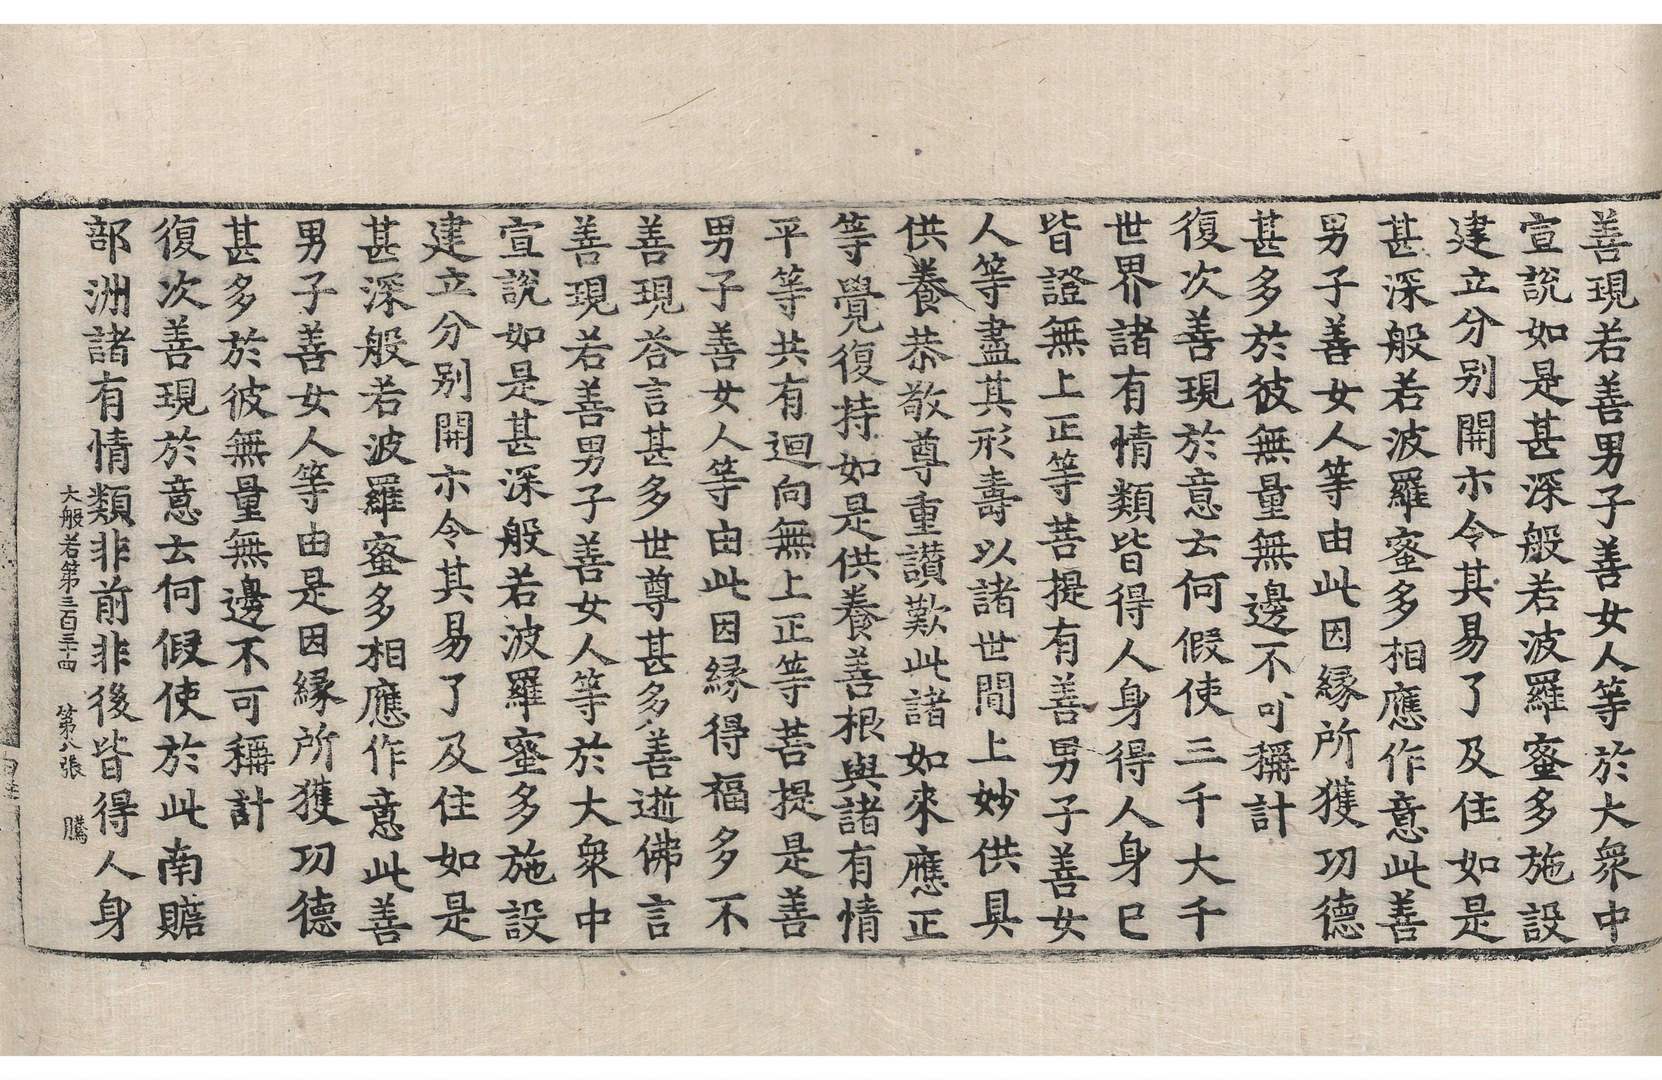 善現若善男子善女人等於大衆中
宣說如是甚深般若波羅蜜多施設
建立分別開示令其易了及住如是
甚深般若波羅蜜多相應作意此善
男子善女人等由此因緣所獲功德
甚多於彼無量無邊不可稱計
復次善現於意云何假使三千大千
世界諸有情類皆得人身得人身已
皆證無上正等菩提有善男子善女
人等盡其形壽以諸世間上妙供具
供養恭敬尊重讚歎此諸如來應正
等覺復持如是供養善根與諸有情
平等共有迴向無上正等菩提是善
男子善女人等由此因緣得福多不
善現荅言甚多世尊甚多善逝佛言
善現若善男子善女人等於大衆中
宣說如是甚深般若波羅蜜多施設
建立分別開示令其易了及住如是
甚深般若波羅蜜多相應作意此善
男子善女人等由是因緣所獲功德
甚多於彼無量無邊不可稱計
復次善現於意云何假使於此南贍
部洲諸有情類非前非後皆得人身
大般若第三百三十四 第八張 騰